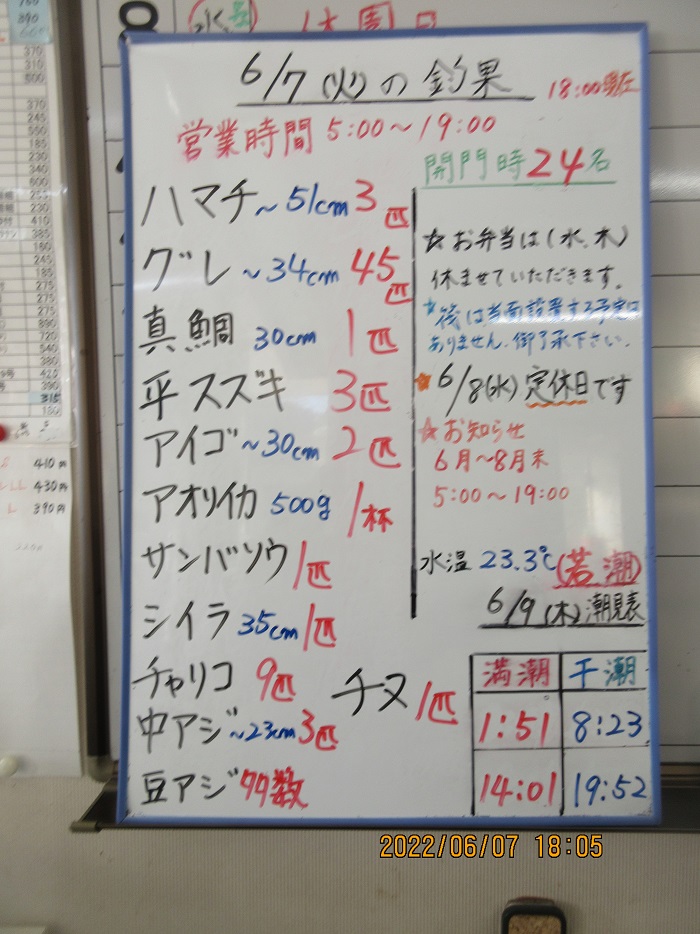 6/7(火)の釣果
18:00現在
営業時間 5:00〜19:00
開門時24名
ハマチ〜51cm 3匹
グレ〜34cm 45匹
真鯛 30cm 1匹
平スズキ 3匹
アイゴ〜30cm 2匹
アオリイカ 500g 1杯
サンバソウ 1匹
シイラ 35cm 1匹
チャリコ 9匹
チヌ 1匹
中アジ〜23cm 3匹
豆アジ 多数
☆お弁当は(水、木)
休ませていただきます。
は当面設置する予定は
ありません。御了承下さい。
6/8(水)定休日です
☆お知らせ
6月〜8月末
5:00〜19:00
水温 23.3℃(若潮)
6/9(木)潮見表
満潮 干潮
1:51 8:23
14:01 19:52
2022/06/07 18:05
410円
430円
390円